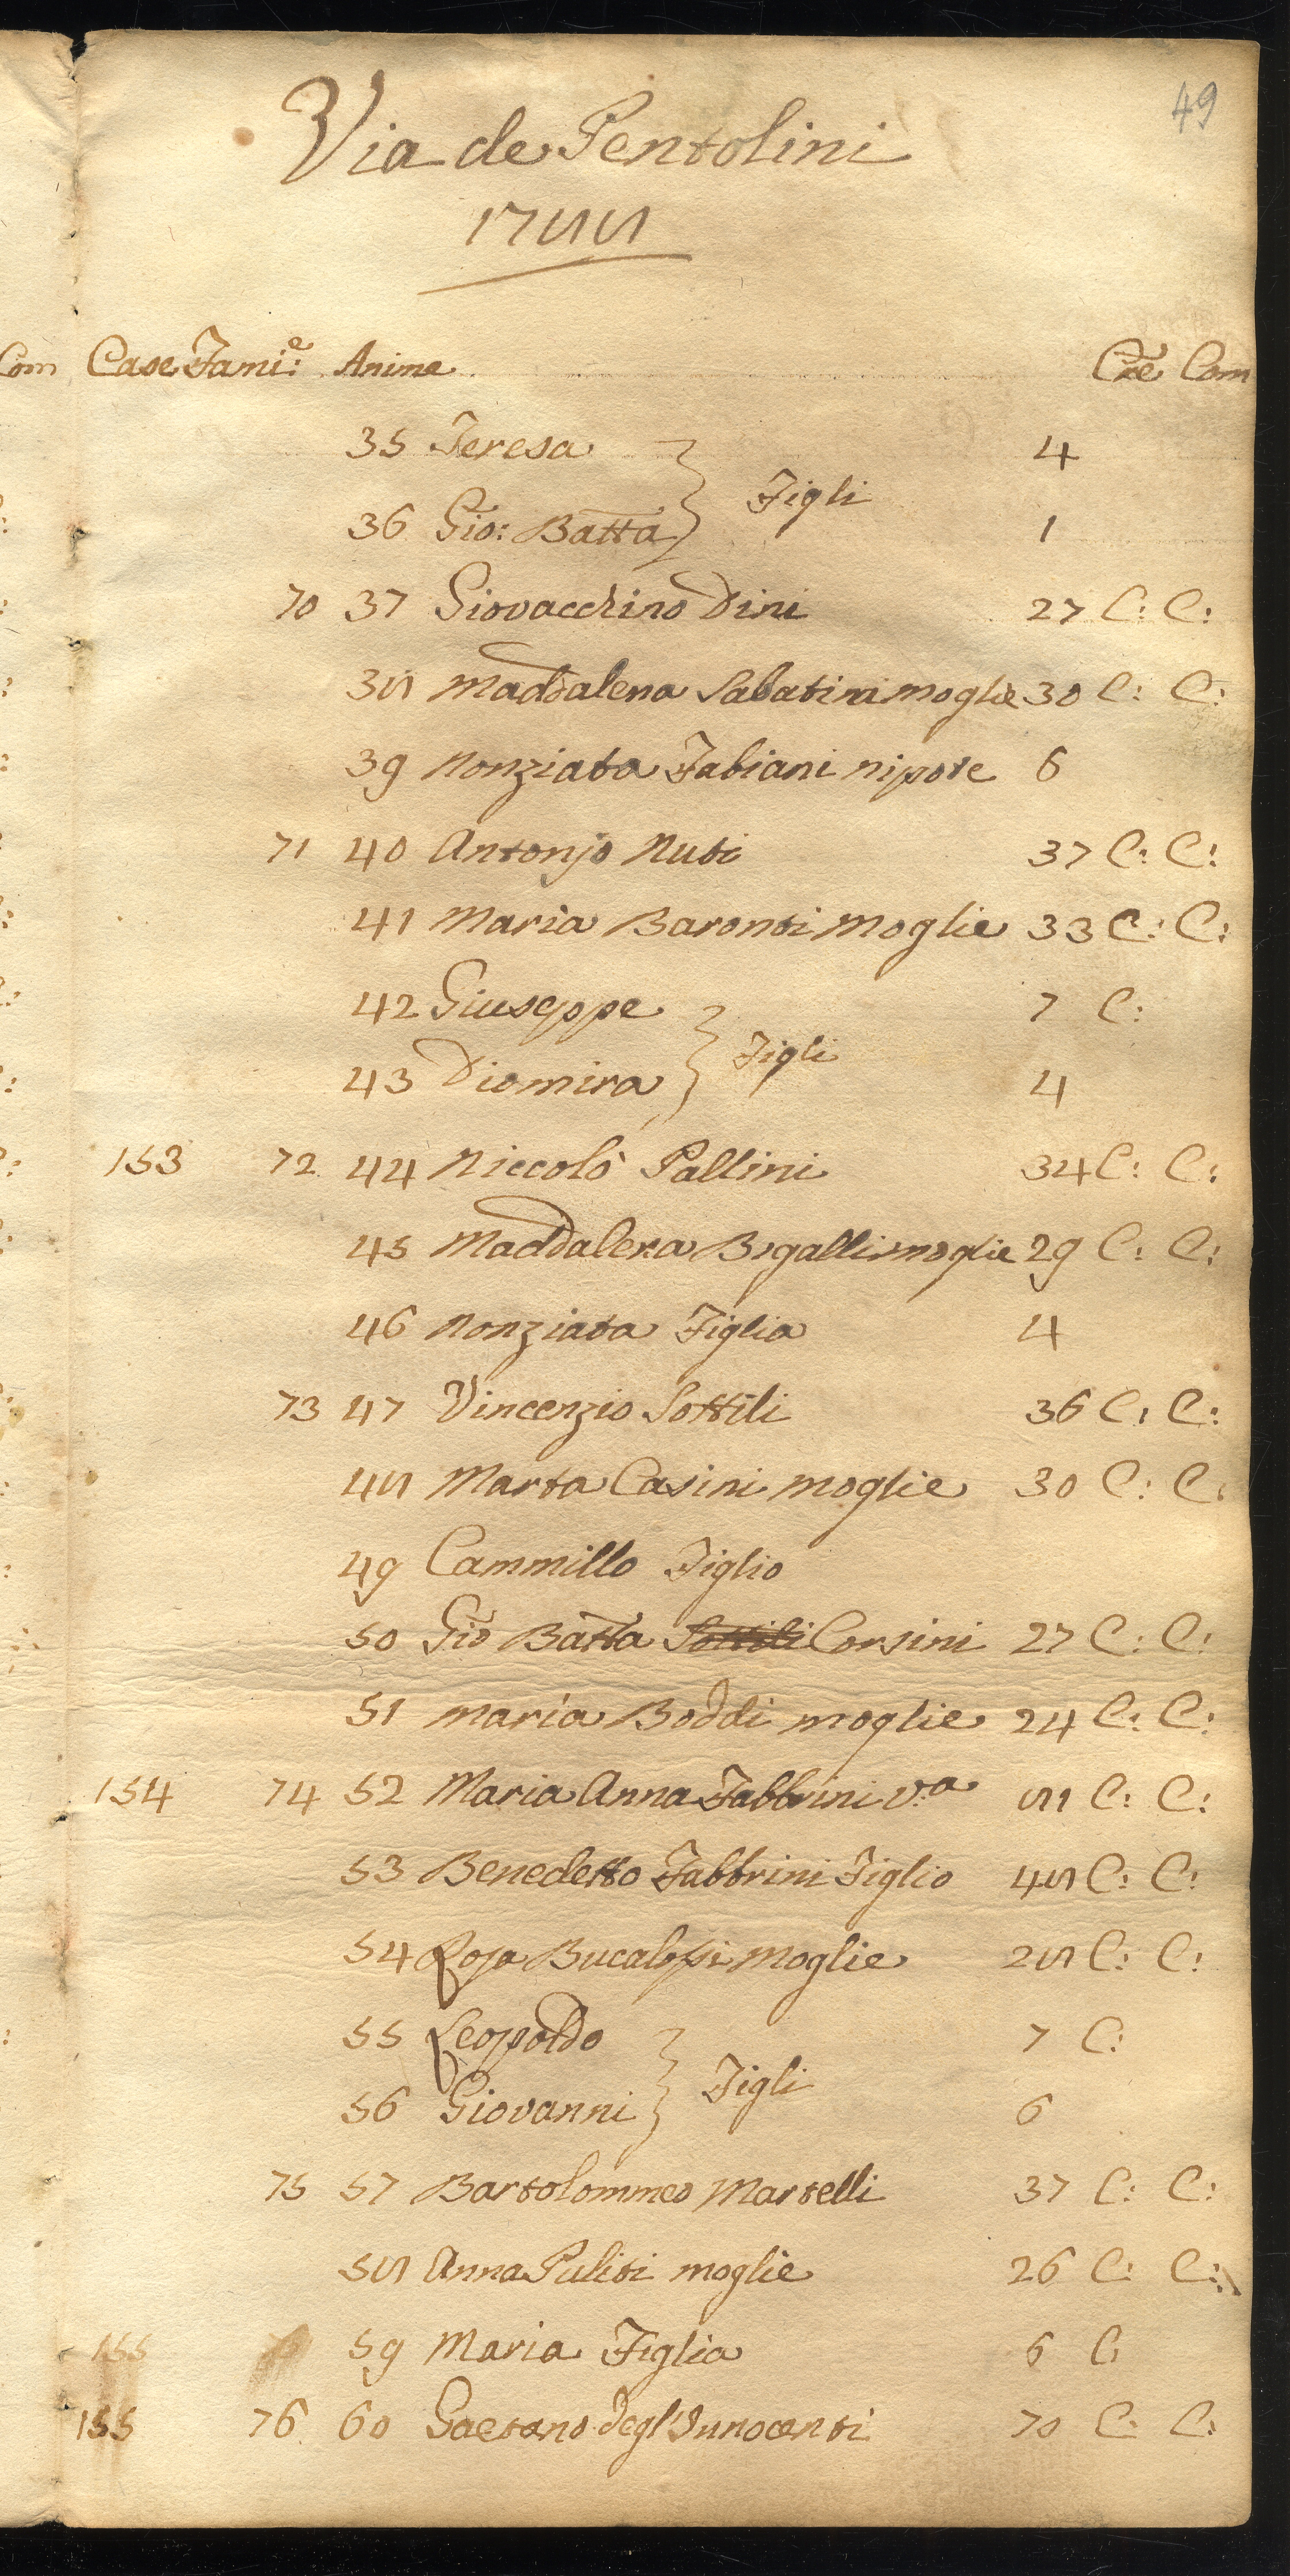 49
Via de Pentolini
1788
Com Case Fami:e Anime Cre Com
35 Teresa } Figli 4
36 Gio: Batta } 1
70 37 Giovacchino Dini 27 C: C:
38 Maddalena Sabatini moglie 30 C: C:
39 Nonziata Fabiani nipote 6
71 40 Antonjo Nuti 37 C: C:
41 Maria Baronti Moglie 33 C: C:
42 Giuseppe } Figli 7 C:
43 Diomira } 4
153 72 44 Niccolò Pallini 34 C: C:
45 Maddalena Bigalli moglie 29 C: C:
46 Nonziata Figlia 4
73 47 Vincenzio Sottili 36 C: C:
48 Marta Casini moglie 30 C: C:
49 Cammillo Figlio
50 Gio Batta Sottili Corsini 27 C: C:
51 Maria Boddi moglie 24 C: C:
154 74 52 Maria Anna Fabbrini v:a 81 C: C:
53 Benedetto Fabbrini Figlio 48 C: C:
54 Rosa moglie 28 C: C:
55 Leopoldo } Figli 7 C:
56 Giovanni } 6
75 57 Bartolommeo Martelli 37 C: C:
58 Anna Puliti moglie 26 C: C:
155 59 Maria Figlia 6 C:
155 76 60 Gaetano degl'Innocenti 70 C: C: